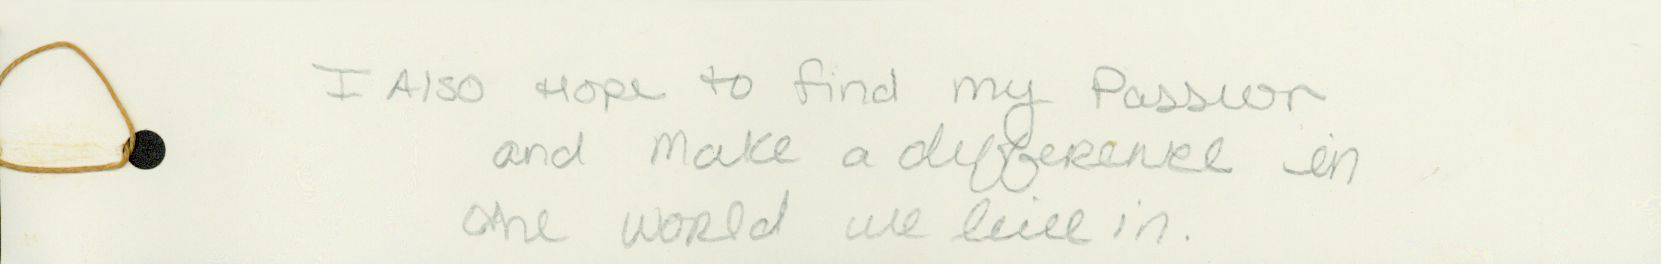 I Also Hope to find my Passion
and make a difference in
the world we live in.